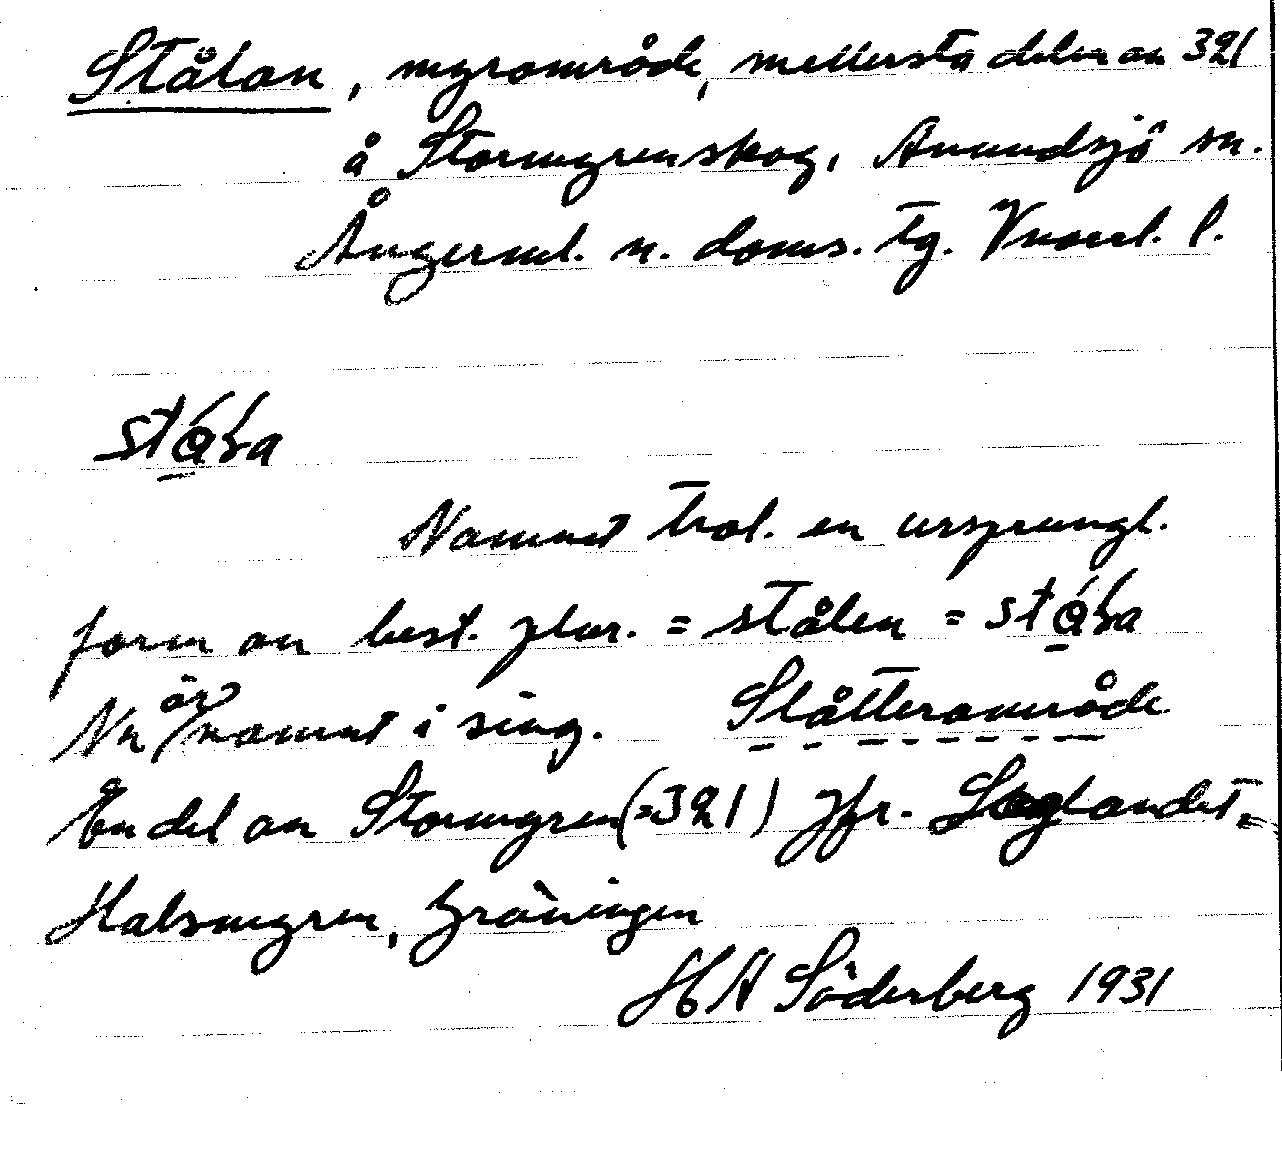 Stålan, myrområde, mellersta delen av 321
å Stormyrenskog, Anundsjö sn.
Ångerml. n. doms. tg. Vnorrl. l.
Namnet trol. en ursprungl.
form av best. plur. = stålen =
Nu är namnet i sing. Slåtterområde
En del av Stormyren (=321) Jfr.
Halsmyren, Gräningen
H A Söderberg 1931